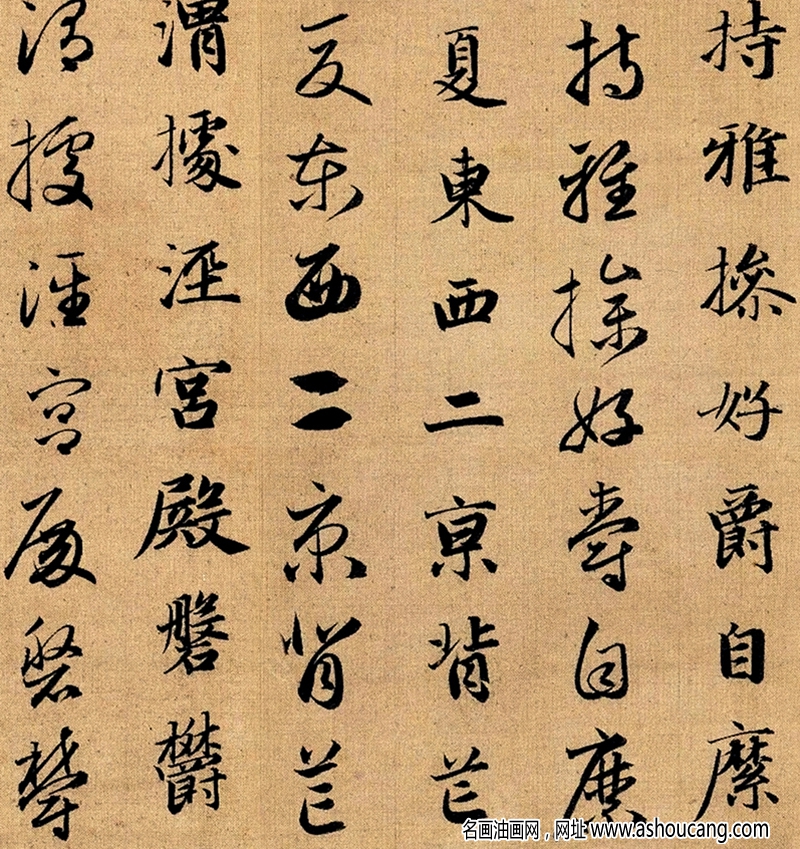 持雅操好爵自縻
持雅操好爵自縻
夏東西二京背芒
夏東西二京背芒
渭據涇宮殿磐鬱
渭據涇宮殿磐鬱
名画油画网，网址 www.ashoucang.com